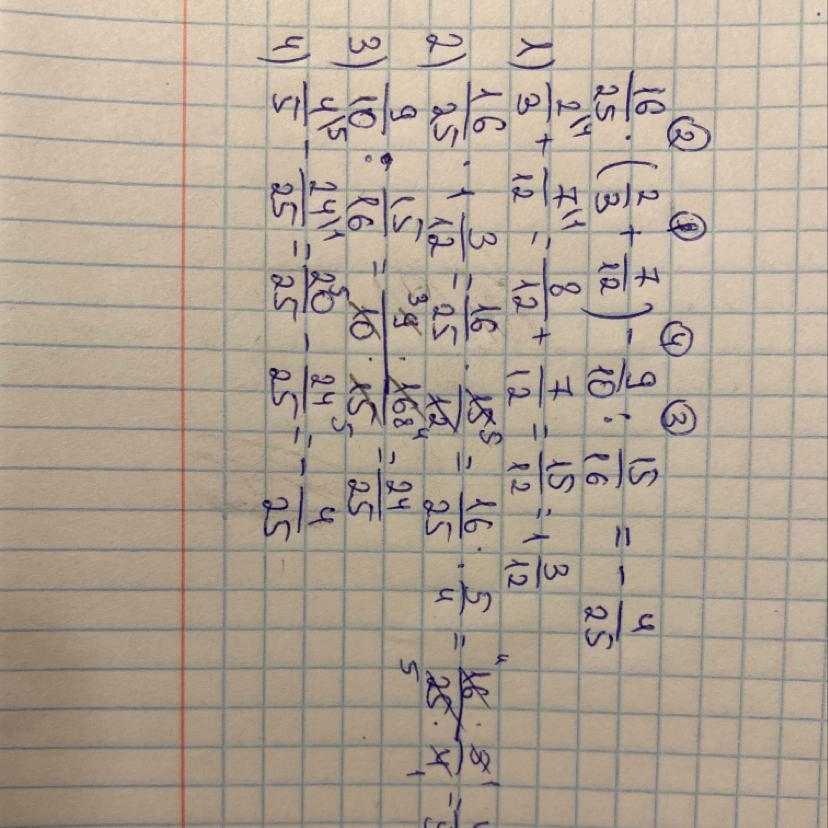 ② ① ④ ③
16/25 · (2/3 + 7/12) - 9/10 : 15/16 = - 4/25
1) 2\4/3 + 7\1/12 = 8/12 + 7/12 = 15/12 = 1 3/12
2) 16/25 · 1 3/12 = 16/25 · 15 5/12 = 16/25 · 5/4 = 4 16 · 5 1/5 25 · 4 1 =
3) 9/10 : 15/16 = 3 9 · 16 8/10 5 · 15 5 = 24/25
4) 4\5/5 - 24\1/25 = 20/25 - 24/25 = - 4/25